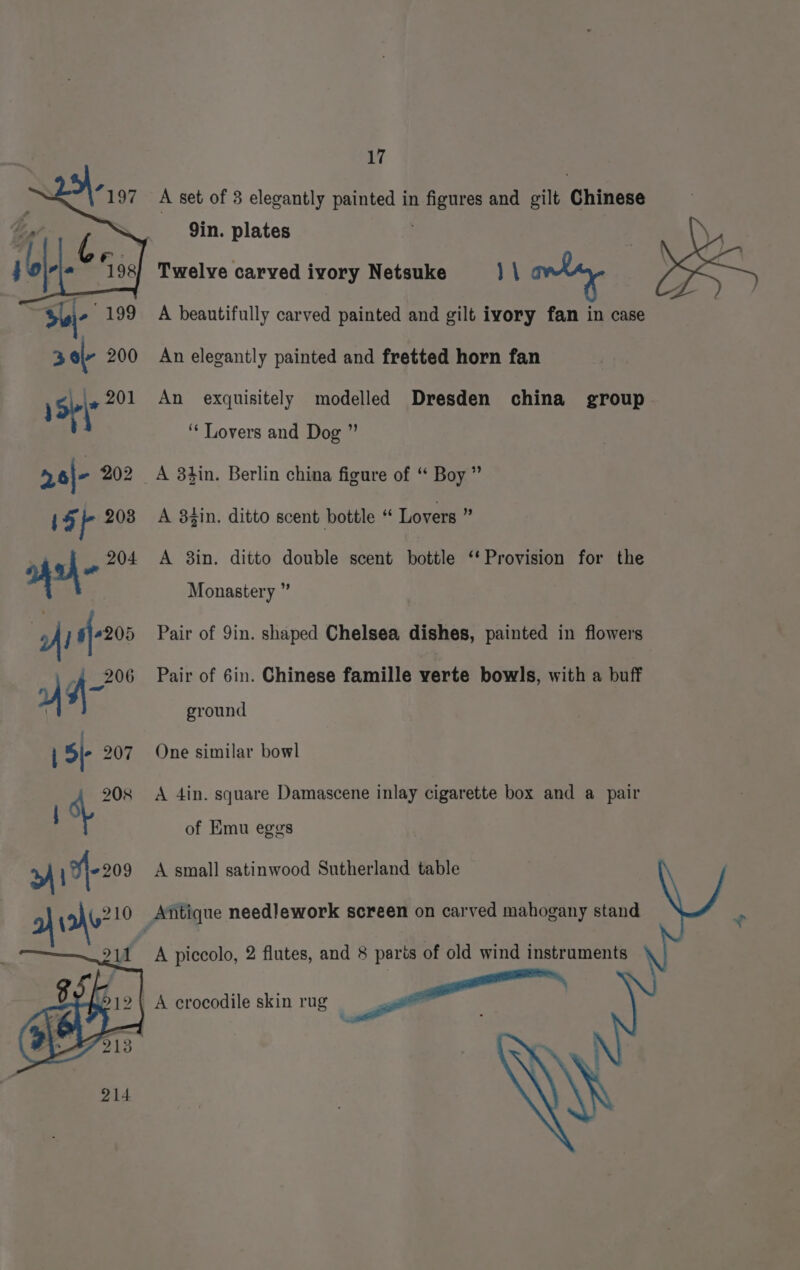 17
197 A set of 3 elegantly painted in figures and gilt Chinese
9in. plates
198 Twelve carved ivory Netsuke 11 only
199 A beautifully carved painted and gilt ivory fan in case
30/- 200 An elegantly painted and fretted horn fan
15/- 201 An exquisitely modelled Dresden china group
“Lovers and Dog”
202 A 3½in. Berlin china figure of “Boy”
15/- 203 A 3½in. ditto scent bottle “Lovers”
204 A 3in. ditto double scent bottle “Provision for the
Monastery”
205 Pair of 9in. shaped Chelsea dishes, painted in flowers
206 Pair of 6in. Chinese famille verte bowls, with a buff
ground
15/- 207 One similar bowl
208 A 4in. square Damascene inlay cigarette box and a pair
of Emu eggs
209 A small satinwood Sutherland table
210 Antique needlework screen on carved mahogany stand
211 A piccolo, 2 flutes, and 8 parts of old wind instruments
212 A crocodile skin rug
213
214